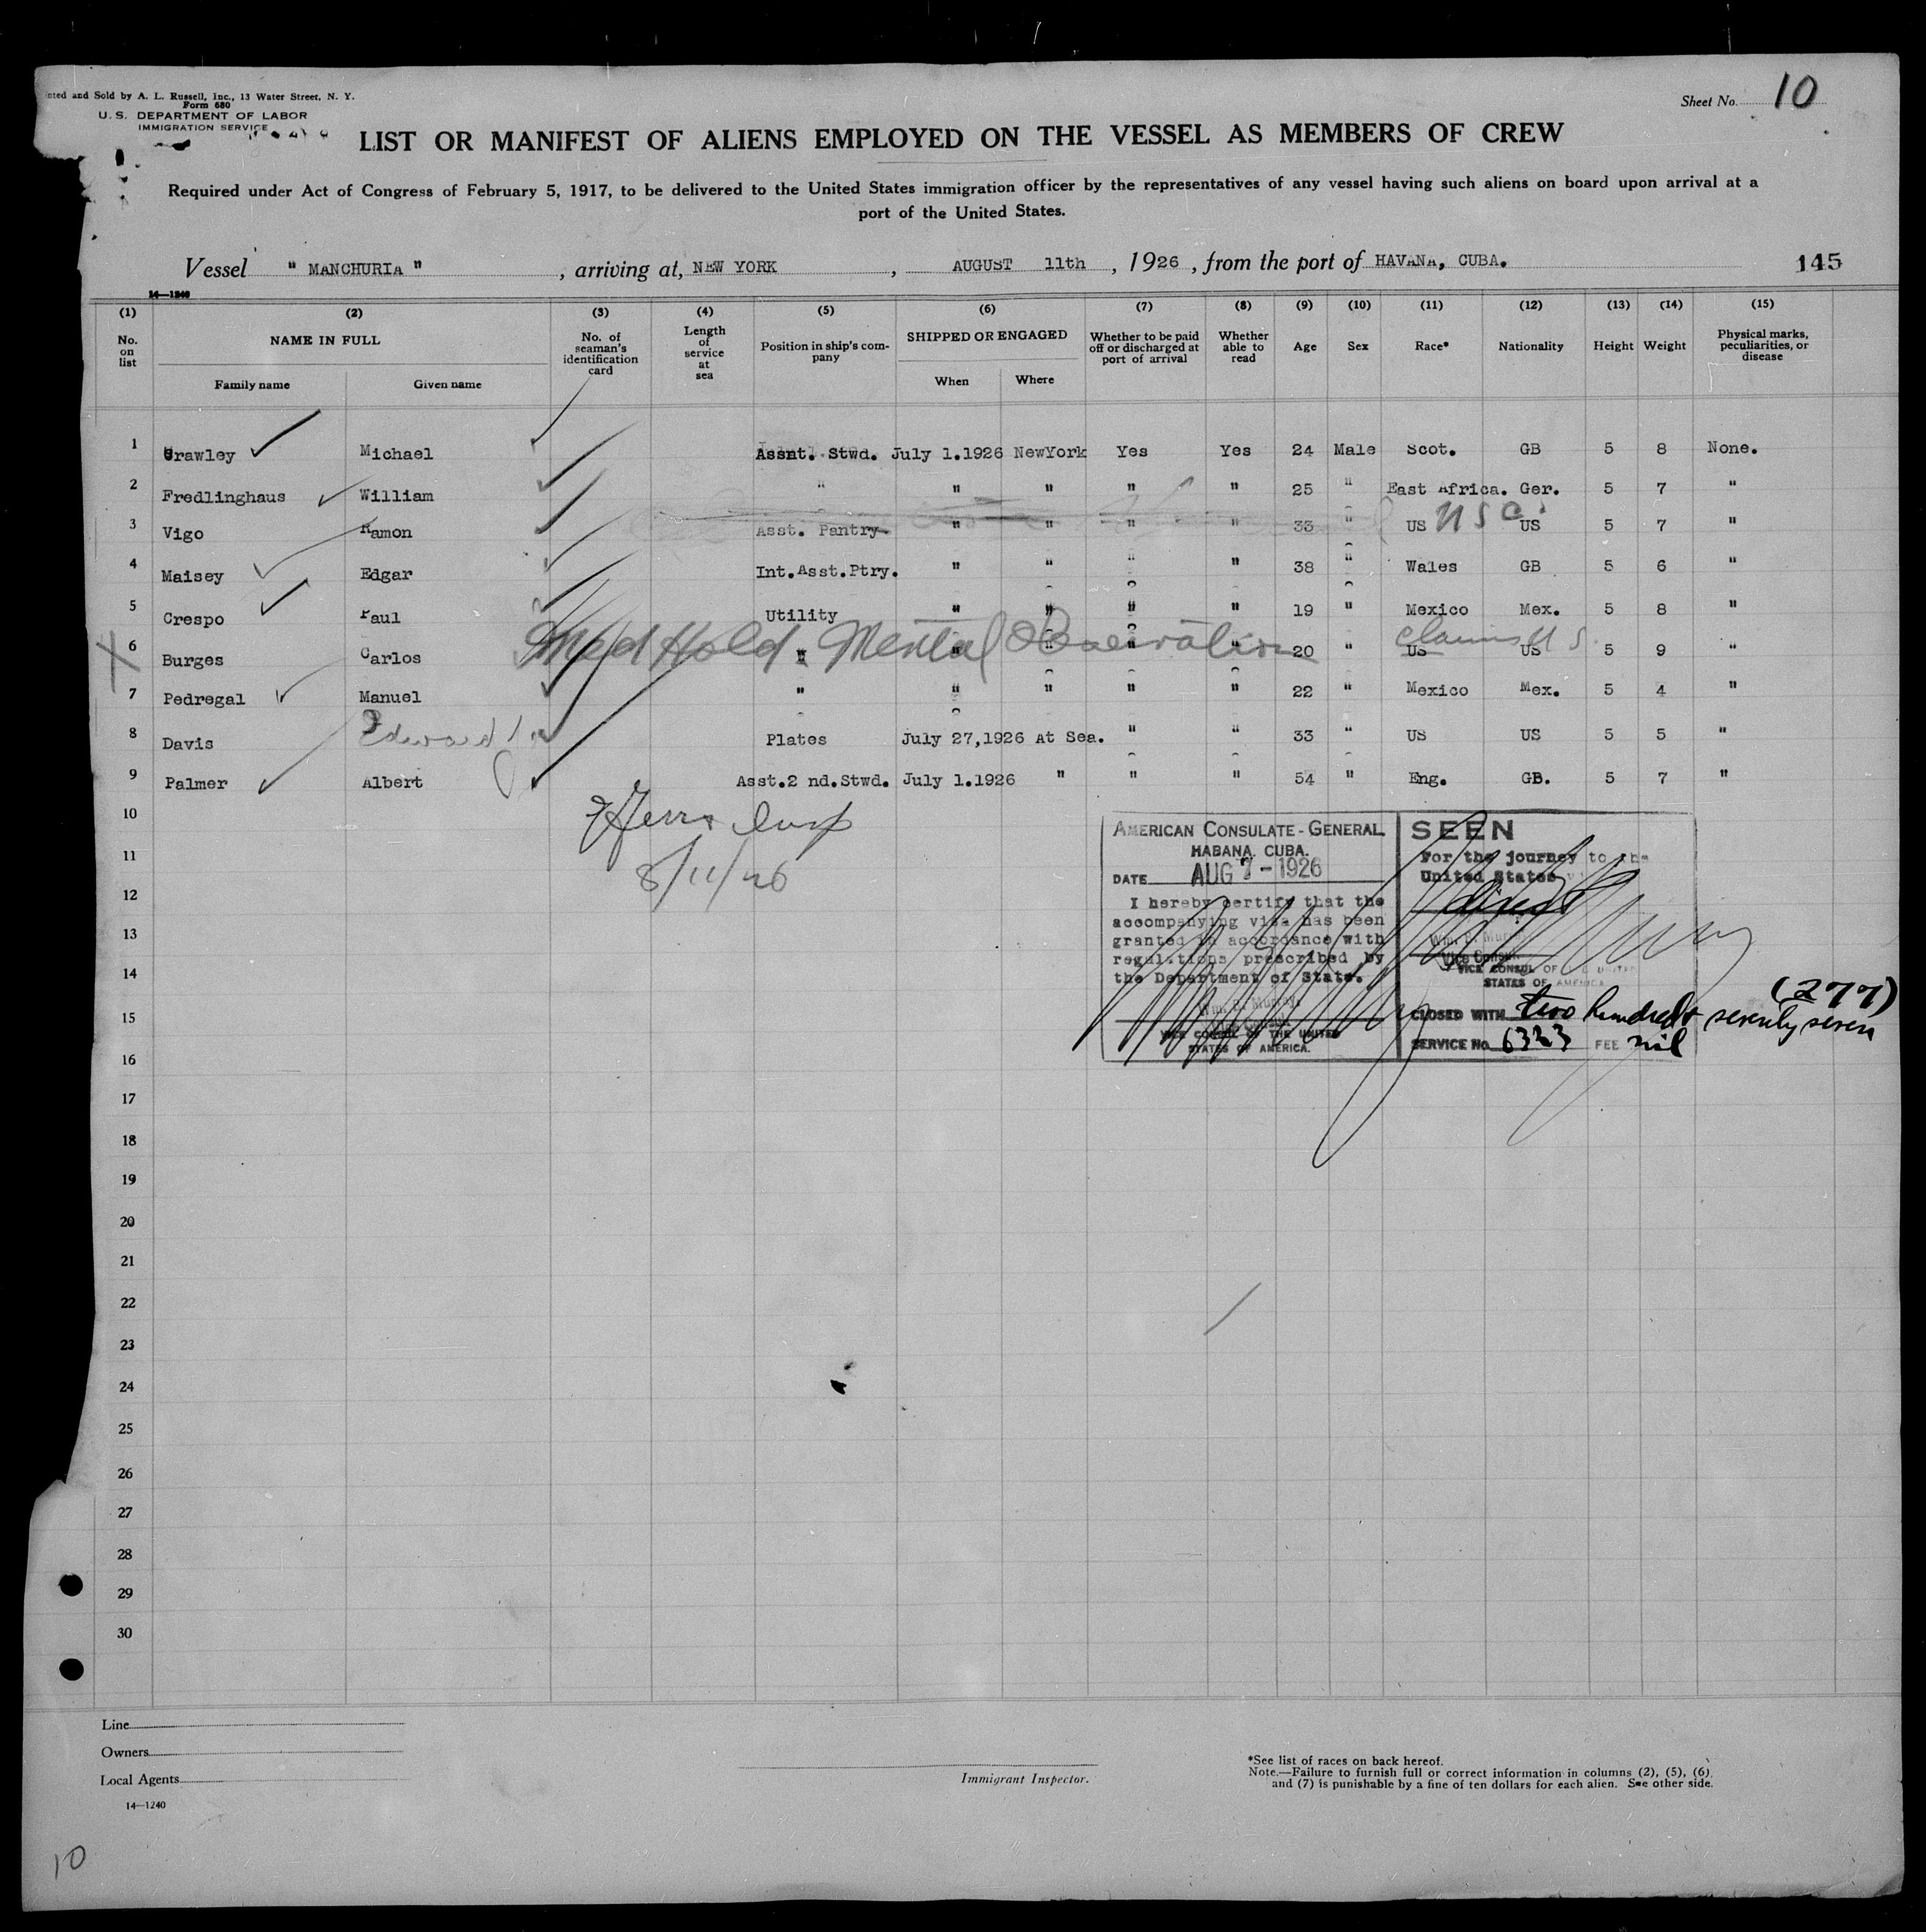 nted and Sold by A. L. Russell, Inc., 13 Water Street, N. Y.
Form 680
U. S. DEPARTMENT OF LABOR
IMMIGRATION SERVICE
Sheet No. 10
LIST OR MANIFEST OF ALIENS EMPLOYED ON THE VESSEL AS MEMBERS OF CREW
Required under Act of Congress of February 5, 1917, to be delivered to the United States immigration officer by the representatives of any vessel having such aliens on board upon arrival at a
port of the United States.
Vessel " MANCHURIA " , arriving at, NEW YORK , AUGUST 11th , 1926 , from the port of HAVANA, CUBA. 145
14—1240
(1) (2) (3) (4) (5) (6) (7) (8) (9) (10) (11) (12) (13) (14) (15)
No. on list NAME IN FULL No. of seaman's identification card Length of service at sea Position in ship's company SHIPPED OR ENGAGED Whether to be paid off or discharged at port of arrival Whether able to read Age Sex Race* Nationality Height Weight Physical marks, peculiarities, or disease
Family name Given name When Where
1 Crawley Michael Assnt. Stwd. July 1.1926 NewYork Yes Yes 24 Male Scot. GB 5 8 None.
2 Fredlinghaus William " " " " " 25 " East Africa. Ger. 5 7 "
3 Vigo Ramon Asst. Pantry " " " " 33 " US USC. US 5 7 "
4 Maisey Edgar Int.Asst.Ptry. " " " " 38 " Wales GB 5 6 "
5 Crespo Paul Utility " " " " 19 " Mexico Mex. 5 8 "
Med Hold. Mental Observation claims U S.
6 Burges Carlos " " " " " 20 " US US 5 9 "
7 Pedregal Manuel " " " " " 22 " Mexico Mex. 5 4 "
8 Davis Edward Plates July 27,1926 At Sea. " " 33 " US US 5 5 "
9 Palmer Albert Asst.2 nd.Stwd. July 1.1926 " " " 54 " Eng. GB. 5 7 "
10
Insp
8/11/26
11
12
13
14
15
16
17
18
19
20
21
22
23
24
25
26
27
28
29
30
AMERICAN CONSULATE-GENERAL
HABANA, CUBA.
DATE AUG 7-1926
I hereby certify that the
accompanying visa has been
granted in accordance with
regulations prescribed by
the Department of State.
Wm. B. Murray
Vice Consul
VICE CONSUL OF THE UNITED
STATES OF AMERICA.
SEEN
For the journey to the
United States
direct
Wm. B. Murray
Vice Consul
VICE CONSUL OF THE UNITED
STATES OF AMERICA
(277)
CLOSED WITH two hundred seventy seven
SERVICE No. 6323 FEE nil
Line
Owners
Local Agents
14—1240
Immigrant Inspector.
*See list of races on back hereof.
Note.—Failure to furnish full or correct information in columns (2), (5), (6),
and (7) is punishable by a fine of ten dollars for each alien. See other side.
10